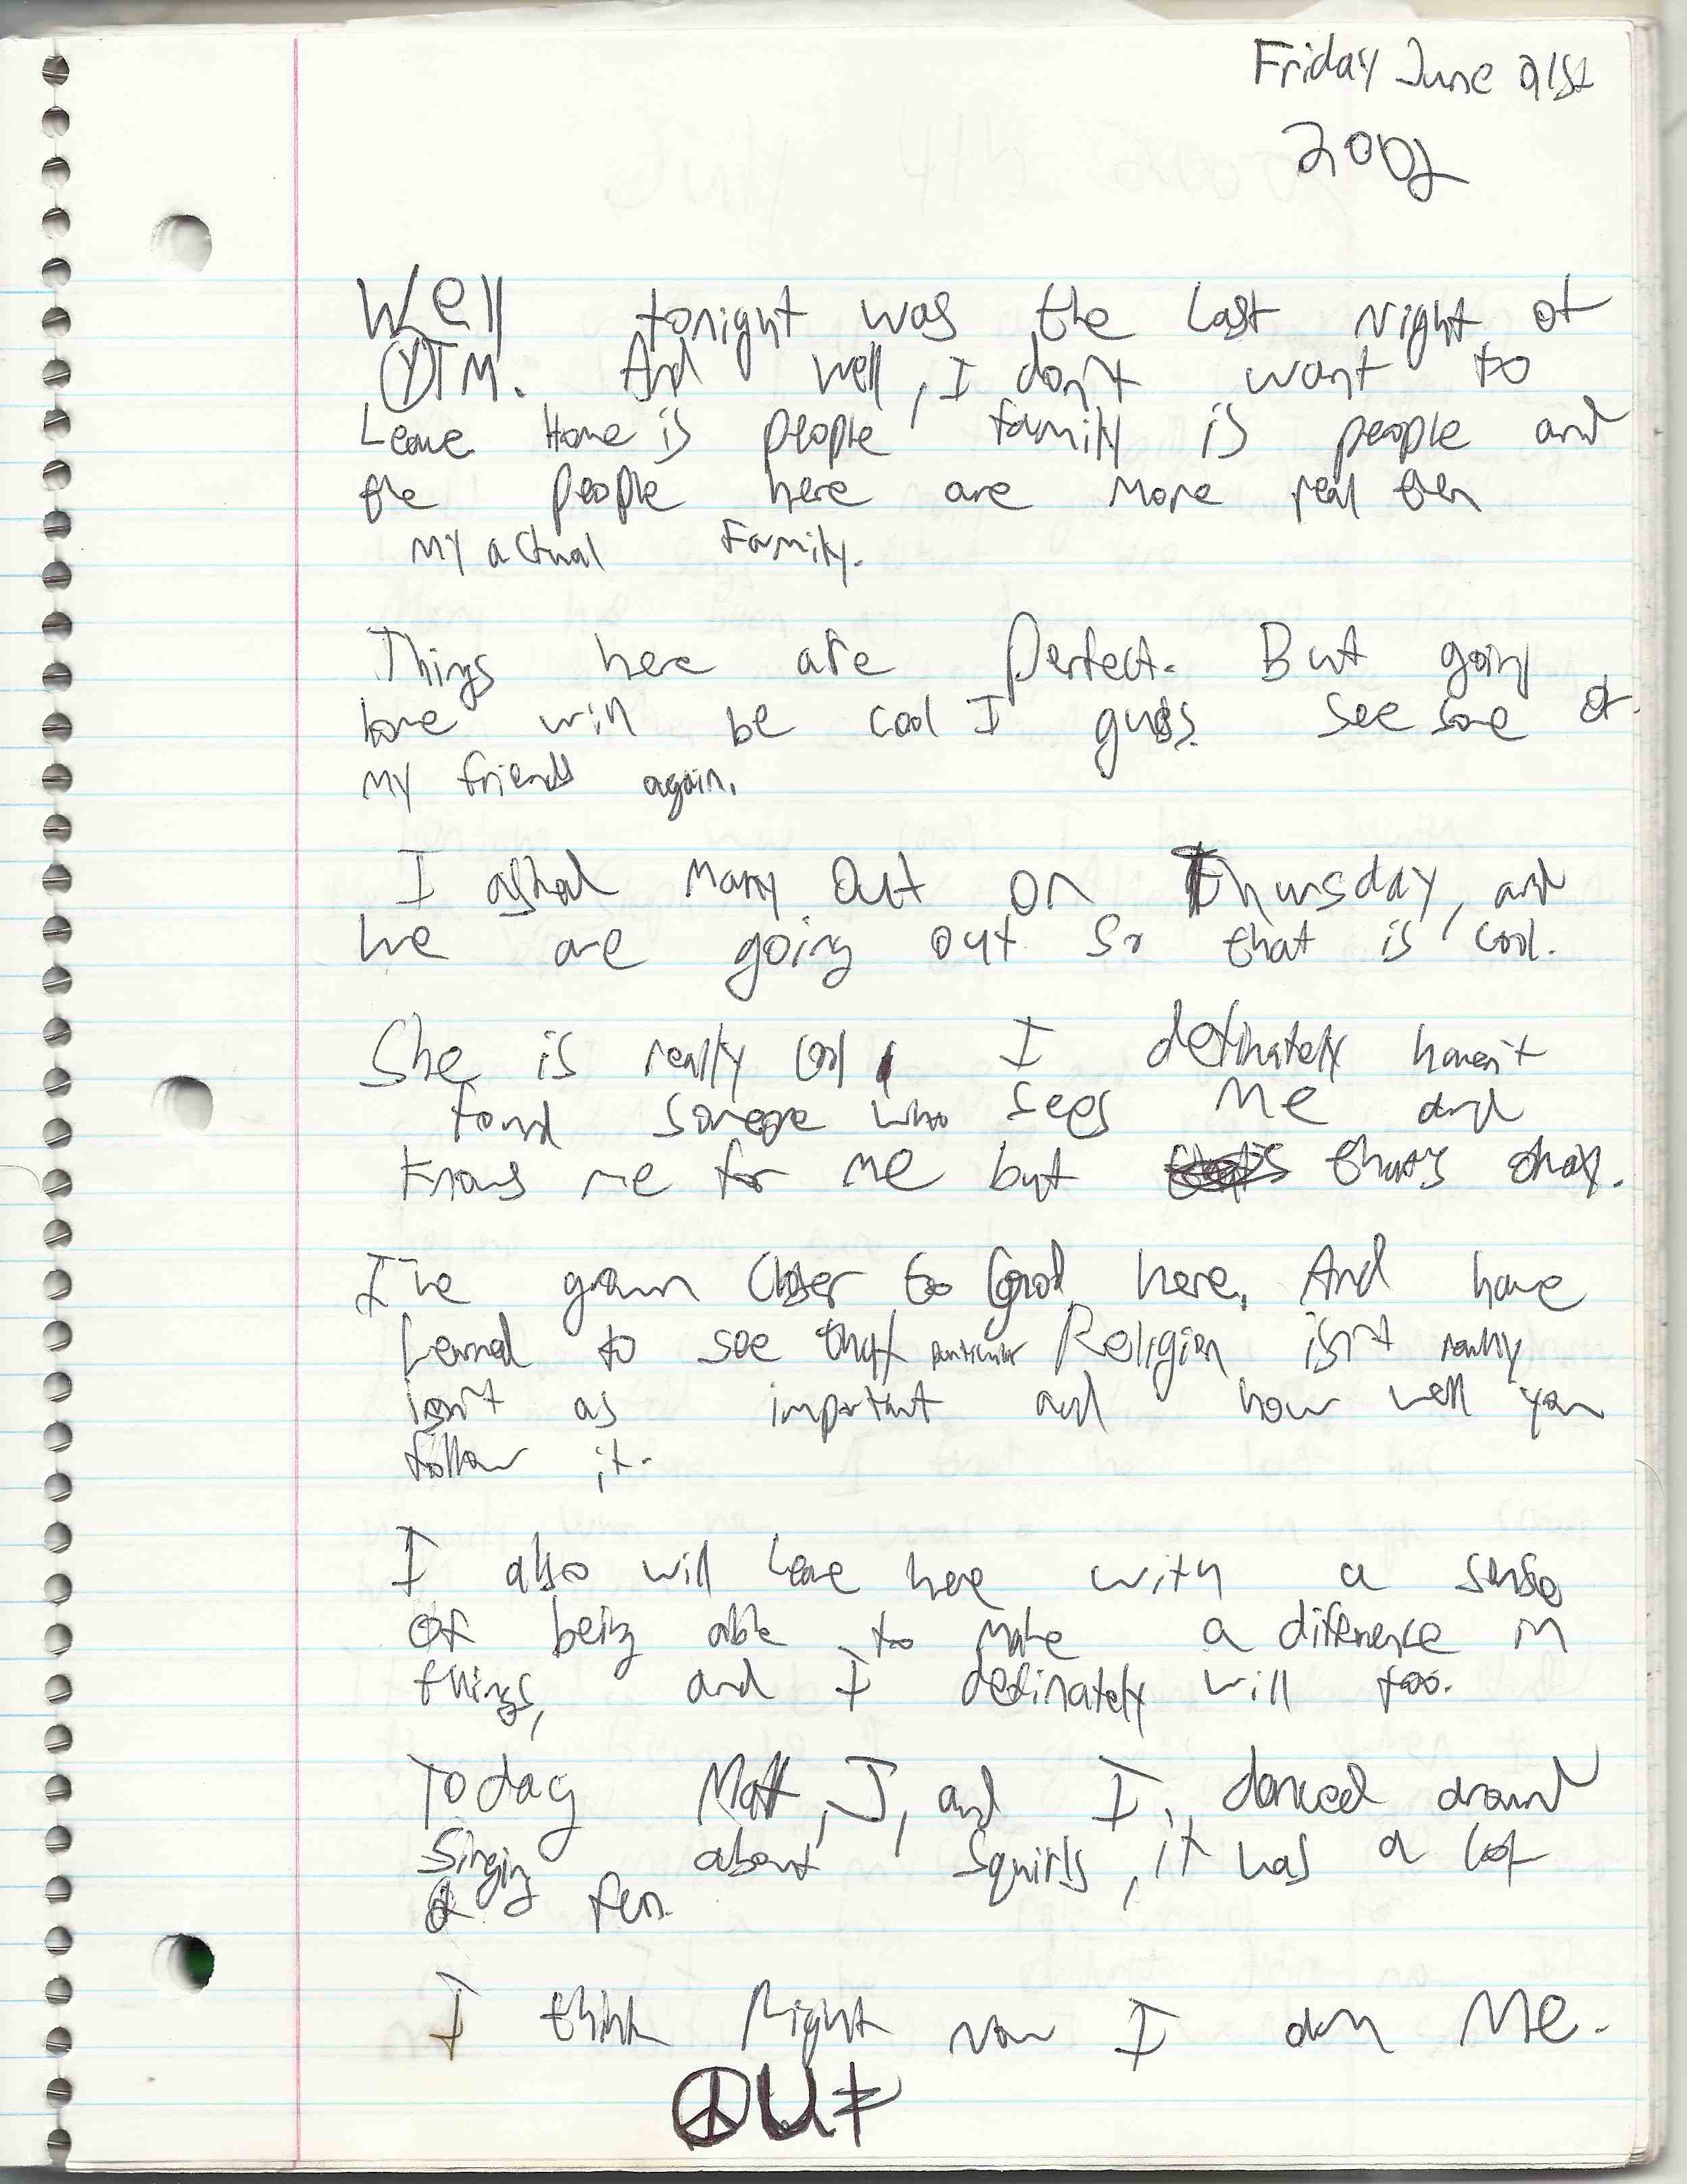 Friday June 21st
2002
Well tonight was the Last Night of
YTM. And well, I don't want to
Leave Home is people family is people and
the people here are more real then
my actual Family.
Things here are perfect. But going
home will be cool I guess. See some of
my friends again.
I asked Mary out on Thursday, and
we are going out so that is cool.
She is really cool, I definately haven't
found someone who sees me and
knows me for me but thats that.
I've grown closer to God here. And have
Learned to see that particular Religion isn't really
isn't as important and how well you
follow it.
I also will leave here with a sense
of being able to make a diference in
things, and I definately will too.
Today Matt, J, and I, danced around
Singing about Squirls, it was a lot
of fun.
I think Right now I am Me.
OUT